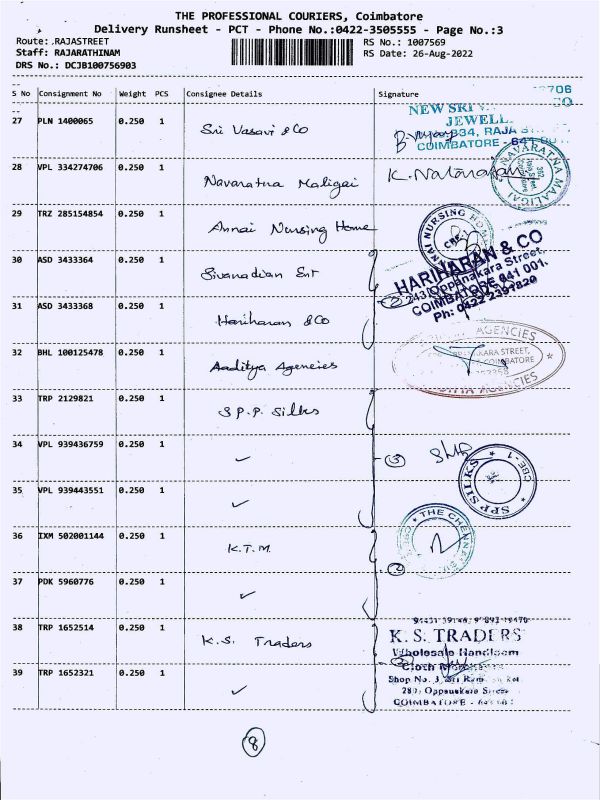 THE PROFESSIONAL COURIERS, Coimbatore
Delivery Runsheet - PCT - Phone No.:0422-3505555 - Page No.:3
Route: .RAJASTREET
RS No.: 1007569
Staff: RAJARATHINAM
RS Date: 26-Aug-2022
DRS No.: DCJB100756903
S No Consignment No Weight PCS Consignee Details Signature
27 PLN 1400065 0.250 1 Sri Vasavi & Co
NEW SRI
JEWELL
834, RAJA
COIMBATORE - 641
28 VPL 334274706 0.250 1 Navaratna Maligai K. Natarajan
NAVARATNA MALIGAI
29 TRZ 285154854 0.250 1 Annai Nursing Home
NURSING HOME
CBE-1
30 ASD 3433364 0.250 1 Sivanadian Ent
HARIHARAN & CO
243, Oppanakara Street,
COIMBATORE 641 001.
Ph: 0422 2391820
31 ASD 3433368 0.250 1 Hariharan & Co
2
32 BHL 100125478 0.250 1 Aaditya Agencies
AGENCIES
KARA STREET,
COIMBATORE
AGENCIES
33 TRP 2129821 0.250 1 S.P.P. Silks
34 VPL 939436759 0.250 1 ✓ 3
SPP SILKS * CBE-1 *
35 VPL 939443551 0.250 1 ✓
36 IXM 502001144 0.250 1 K.T.M.
THE CHENNAI
2
37 PDK 5960776 0.250 1 ✓
38 TRP 1652514 0.250 1 K.S. Traders
K. S. TRADERS
Wholesale Handloom
Cloth Merchants
Shop No. 3, Sri Ram
280, Oppanakara Street
COIMBATORE - 641 001
39 TRP 1652321 0.250 1 ✓
8